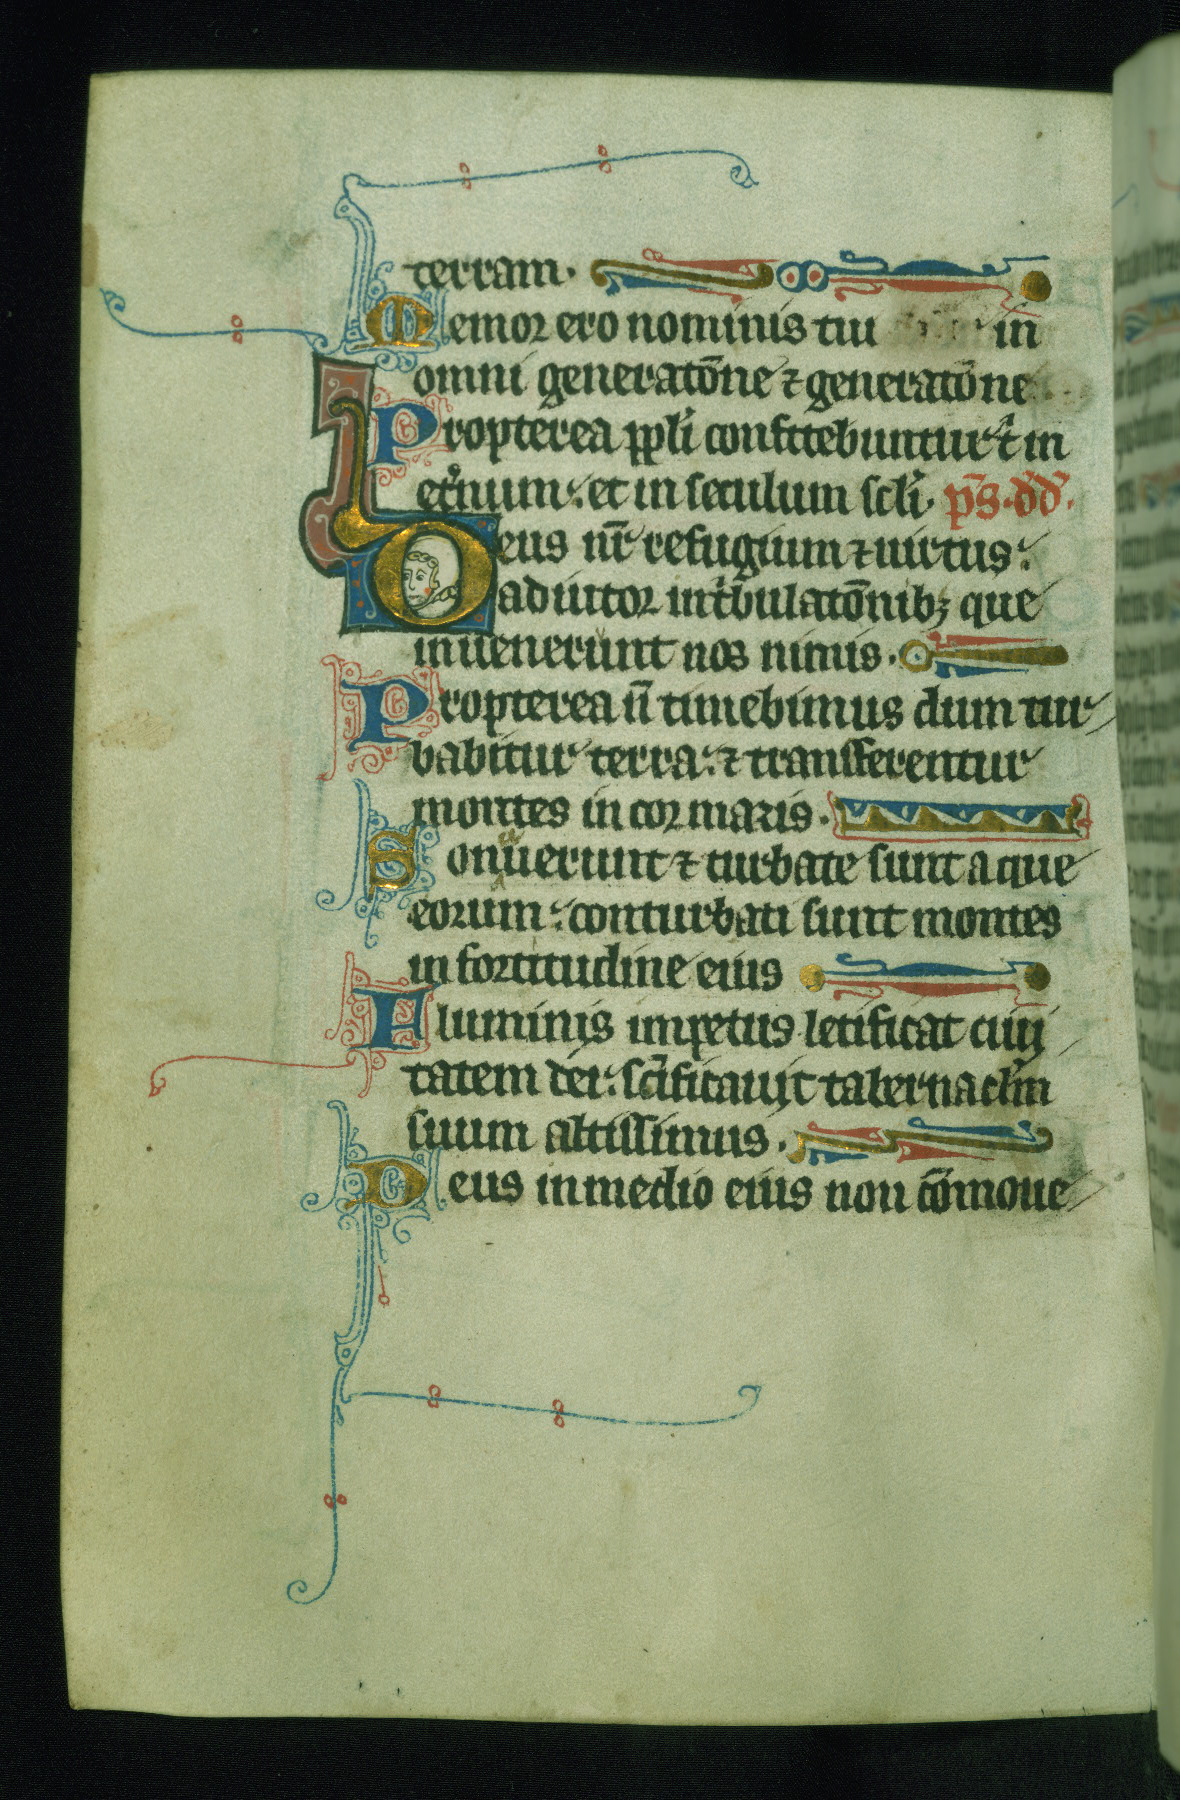 terram.
Memor ero nominis tui in
omni generatōne ⁊ generatōne
Propterea ppl̓i confitebuntur t̓ in
et̓num: et in seculum scl̓i. p̄s. d̄d̄.
Deus nr̄ refugium ⁊ uirtus:
adiutor in tͥbulatōnibꝫ que
inuenerunt nos nimis.
Propterea n̄ timebimus dum tur
babitur terra: ⁊ transferentur
montes in cor maris.
Sonauerunt ⁊ turbate sunt aque
eorum: conturbati sunt montes
in fortitudine eius
Fluminis impetus letificat ciui
tatem dei: sc̄ificauit tabernacl̓m
suum altissimus.
Deus in medio eius non cōmoue